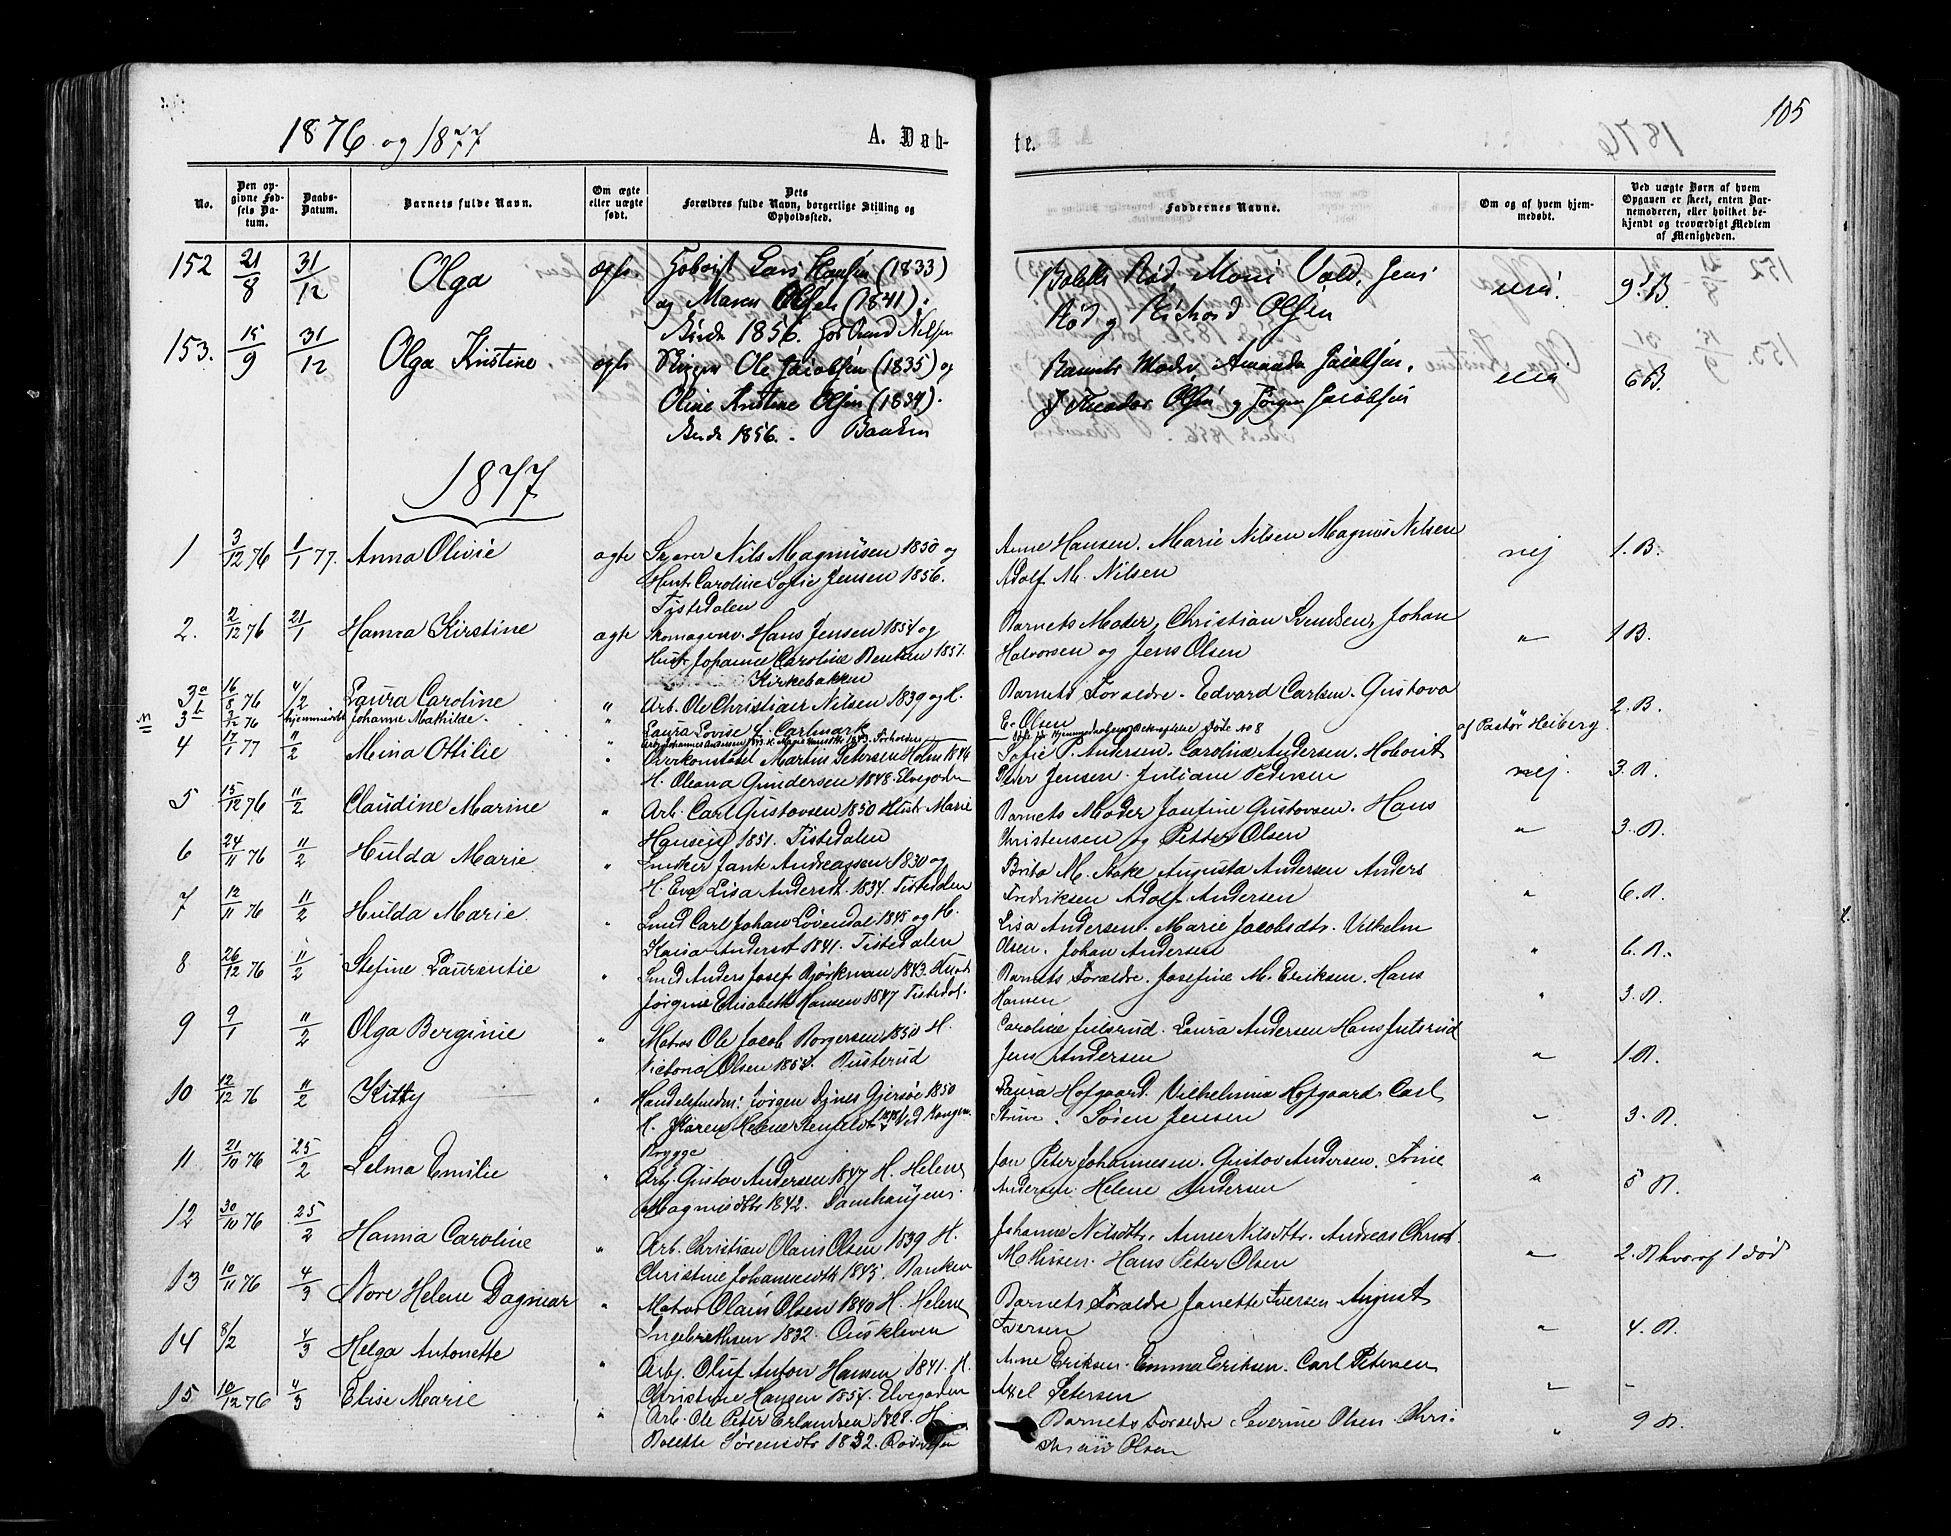 105
1876 og 1877
A. Døb-
te.
No.
Den op-
givne Fød-
sels Da-
tum.
Daabs-
Datum.
Barnets fulde Navn.
Om ægte
eller uægte
født.
Dets
Forældres fulde Navn, borgerlige Stilling og
Opholdssted.
Faddernes Navne.
Om og af hvem hjem-
medøbt.
Ved uægte Børn af hvem
Opgaven er skeet, enten Bar-
nemoderen, eller hvilket be-
kjendt og troværdigt Medlem
af Menigheden.
152 21/8 31/12 Olga ægte. Lars Hansen (1833)
og Maren Olsen (1841).
1856.
Olsen
9 B.
153. 15/9 31/12 Olga Kristine ægte Ole Jacobsen (1835) og
Oline Kristine Olsen (1834).
1856. Banken
Barnets Moder, Amanda Jacobsen,
Theodor Olsen og Jørgen Jacobsen
6 B.
1877
1 3/12 76 1/1 77. Anna Olivie ægte Nils Magnusen 1850 og
Hust. Caroline Sofie Jensen 1856.
Tistedalen
Anne Hansen. Marie Nilsen Magnus Nilsen
Adolf M. Nilsen
nej 1. B.
2. 2/12 76 21/1 Hanna Kirstine ægte Skomagersv. Hans Jensen 1854 og
Hust. Johanne Caroline Benthen 1851.
Kirkebakken
Barnets Moder, Christian Svendsen, Johan
Halvorsen og Jens Olsen
" 1 B.
3a 16/8 76 4/2 Laura Caroline " Arb. Ole Christian Nilsen 1839 og H.
Laura Lovise
Barnets Forældre. Edvard Carlsen. Gustava
E. Olsen
2. B.
3b 3/12 76 hjemmedøbt Johanne Mathilde. "
af Pastor Heiberg.
4 17/1 77 11/2 Mina Ottilie " Martin Petersen Holm 1846
H. Oleana Gundersen 1848. Elvegaden
Sofie P. Andersen. Caroline Andersen.
Peter Jensen. Juliane Pedersen
nej. 3. B.
5 15/12 76 11/2 Claudine Marine " Arb. Carl Gustavsen 1850 Hust. Marie
Hansen 1851. Tistedalen
Barnets Moder Josefine Gustavsen. Hans
Christensen og Petter Olsen
" 3. B.
6 24/11 76 11/2 Hulda Marie " Andreassen 1830 og
H. Eva Lisa Andersdt. 1834. Tistedalen
Brita M. Augusta Andersen Anders
Fredriksen Adolf Andersen
" 6. B.
7 12/11 76 11/2 Hulda Marie. " Smed Carl Johan Løvendal 1845 og H.
Kaisa Andersdt 1841. Tistedalen
Lisa Andersen. Marie Jacobsdtr. Vilhelm
Olsen. Johan Andersen
" 6. B.
8 26/12 76 11/2 Stefine Laurentie " Smed Anders Josef Bjørkman 1843. Hust.
Jørgine Elisabeth Hansen 1847 Tistedal.
Barnets Forældre. Josefine M. Eriksen. Hans
Hansen
" 3. B.
9 9/1 11/2 Olga Berginie " Matros Ole Jacob Borgersen 1850 H.
Victoria Olsen 1854. Busterud
Caroline Julsrud. Laura Andersen Hans Julsrud
Jens Andersen
" 1. B.
10 12/12 76 11/2 Kitty " Jørgen Gjersøe 1850
H. Karen Helene
Brygge
Laura Hofgaard. Vilhelmine Hofgaard. Carl
Søren Jensen
" 3. B.
11 21/10 76 25/2 Selma Emilie " Arb. Gustav Andersen 1847 H. Helene
Magnisdtr 1842. Damhaugen.
Jon Peter Johannesen. Gustav Andersen. Trine
Andersen. Helene Andersen
" 5 B.
12 30/10 76 25/2 Hanna Caroline " Arb. Christian Olaus Olsen 1839 H.
Christine Johannesdtr 1845. Banken
Johanne Nilsdtr. Anne Nilsdtr. Andreas Christ.
Hans Peter Olsen
" 2. B hvoraf 1 død
13 10/11 76 4/3 Nore Helene Dagmar " Matros Olaus Olsen 1840 H. Helene
Ingebrethsen 1832.
Barnets Forældre Janette Iversen August
Iversen
" 4. B.
14 8/2 4/3 Helga Antonette " Arb. Oluf Anton Hansen 1841. H.
Christine Hansen 1854. Elvegaden
Anne Eriksen. Emma Eriksen. Carl Petersen
Axel Petersen
" -
15 10/12 76 4/3 Elise Marie " Arb. Ole Peter Erlandsen 1828. H.
Bolette Sørensdtr 1832.
Barnets Forældre Severine Olsen. Chri-
Olsen
" 9 B.